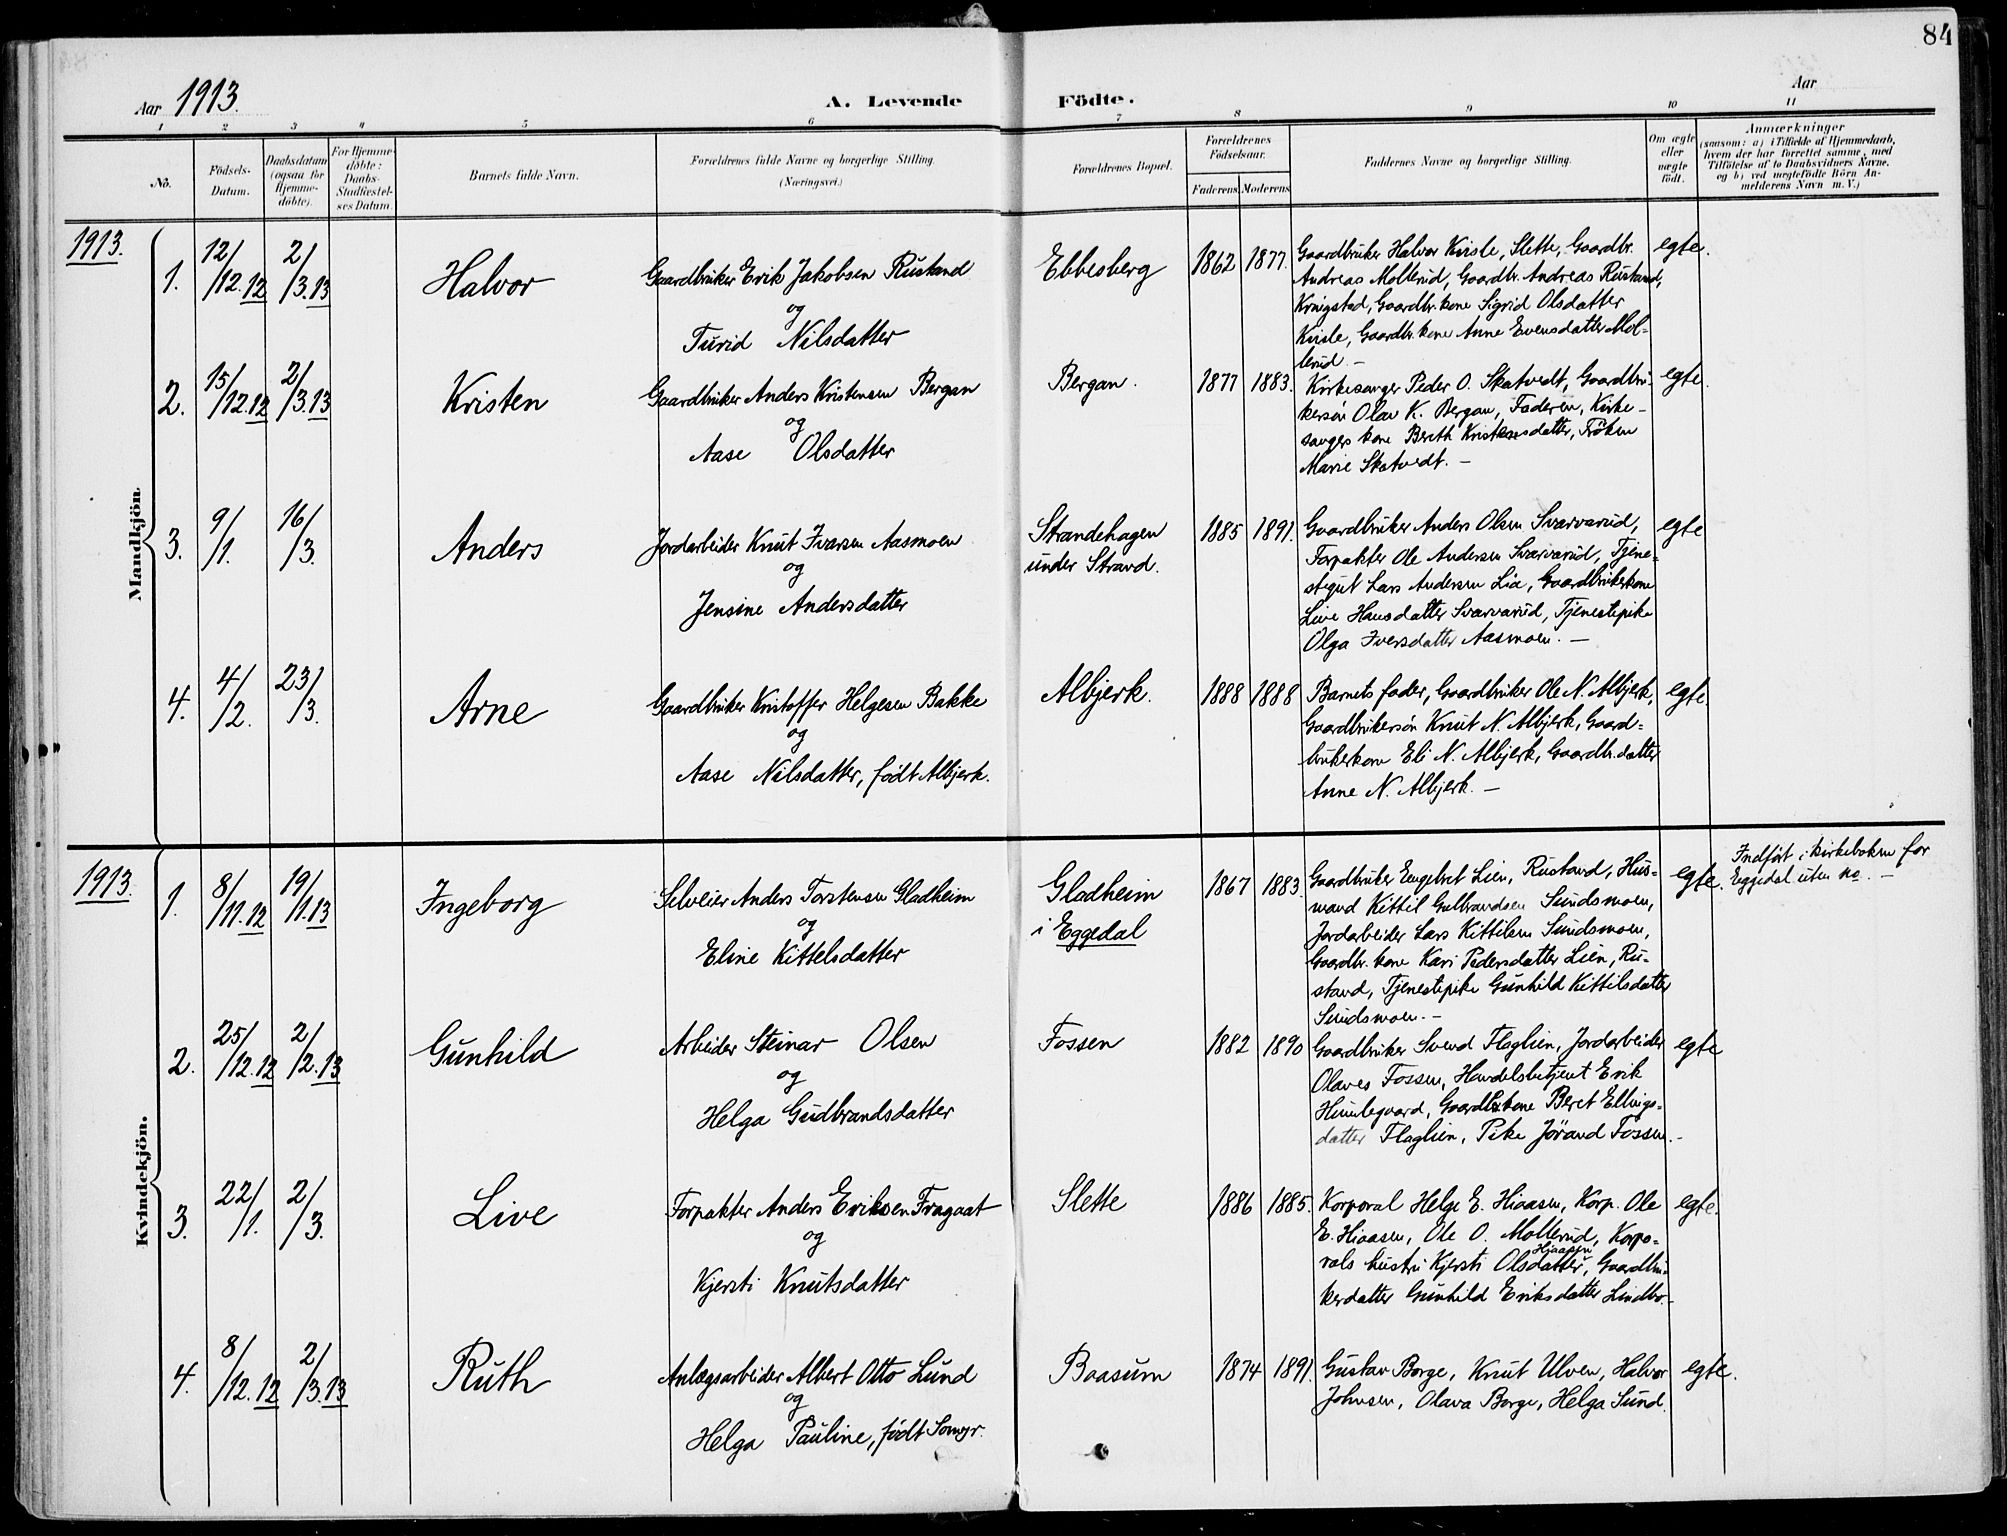 84
Aar 1913.
A. Levende Födte.
Aar
1 2 3 4 5 6 7 8 9 10 11
No.
Födsels-
Datum.
Daabsdatum
(ogsaa for
Hjemme-
döbte).
For Hjemme-
döbte:
Daabs-
Stadfæstel-
ses Datum.
Barnets fulde Navn.
Forældrenes fulde Navne og borgerlige Stilling.
(Næringsvei.)
Forældrenes Bopæl.
Forældrenes
Födselsaar.
Faderens Moderens
Faddernes Navne og borgerlige Stilling.
Om ægte
eller
uægte
født.
Anmærkninger
(saasom: a) i Tilfælde af Hjemmedaab,
hvem der har forrettet samme, med
Tilföielse af to Daabsvidners Navne,
og b) ved uægtefödte Börn An-
melderens Navn m. V.)
1913.
Mandkjön
1. 12/12.12 2/3.13 Halvor
Gaardbruker Erik Jakobsen Rustand
og
Turid Nilsdatter
Ebbesberg 1862 1877.
Gaardbruker Halvor Kirsle, Slette, Gaardbr.
Andreas Mollerud, Gaardbr. Andreas Rustand,
Kringstad, Gaardbr. kone Sigrid Olsdatter
Kirsle, Gaardbr. kone Anne Evensdatter Mol-
lerud. -
egte.
2. 15/12.12 2/3.13 Kristen
Gaardbruker Anders Kristensen Bergan
og
Aase Olsdatter
Bergan. 1877 1883.
Kirkesanger Peder O. Skatvedt, Gaardbru-
kersön Olav K. Bergan, Faderen, Kirke-
sangers kone Bereth Kristensdatter, Fröken
Marie Skatvedt. -
egte.
3. 9/1. 16/3. Anders
Jordarbeider Knut Ivarsen Aasmoen
og
Jensine Andersdatter
Strandehagen
under Strand.
1885 1891.
Gaardbruker Anders Olsen Svarvarud,
Forpakter Ole Andersen Svarvarud, Tjene-
stegut Lars Andersen Lia, Gaardbrukerkone
Live Hansdatter Svarvarud, Tjenestepike
Olga Iversdatter Aasmoen. -
egte
4. 4/2. 23/3. Arne
Gaardbruker Kristoffer Helgesen Bakke
og
Aase Nilsdatter, født Albjerk.
Albjerk. 1888 1888
Barnets fader, Gaardbruker Ole N. Albjerk,
Gaardbrukersön Knut N. Albjerk, Gaard-
brukerkone Eli N. Albjerk, Gaardbr. datter
Anne N. Albjerk. -
egte.
1913.
Kvindekjön.
1. 8/11.12 19/1.13 Ingeborg
Selveier Anders Torstensen Gladheim
og
Eline Kittelsdatter
Gladheim
i Eggedal
1867 1883
Gaardbruker Engebret Lien, Rustand, Hus-
mand Kittil Gulbrandsen Sundsmoen,
Jordarbeider Lars Kittilsen Sundsmoen,
Gaardbr. kone Kari Pedersdatter Lien, Ru-
stand, Tjenestepike Gunhild Kittilsdatter
Sundsmoen. -
egte.
Indfört i kirkeboken for
Eggedal uten no. -
2. 25/12.12 2/2.13 Gunhild
Arbeider Steinar Olsen
og
Helga Gudbrandsdatter
Fossen 1882 1890
Gaardbruker Svend Flaglien, Jordarbeider
Olaves Fossen, Handelsbetjent Erik
Humlegaard, Gaardbr.kone Beret Ellings-
datter Flaglien, Pike Jörand Fossen. -
egte
3. 22/1. 2/3. Live
Forpakter Anders Eriksen Fragaat
og
Kjersti Knutsdatter
Slette 1886 1885.
Korporal Helge E. Hiaasen, Korp. Ole
E. Hiaasen, Ole O. Mollerud, Korpo-
rals hustru Kjersti Olsdatter Hiaasen, Gaardbru-
kerdatter Gunhild Eriksdatter Lindbo. -
egte.
4. 8/12.12 2/3.13 Ruth
Anlægsarbeider Albert Otto Lund
og
Helga Pauline, født
Baasum 1874 1891.
Gustav Borge, Knut Ulven, Halvor
Johnsen, Olava Borge, Helga Lund.
egte.